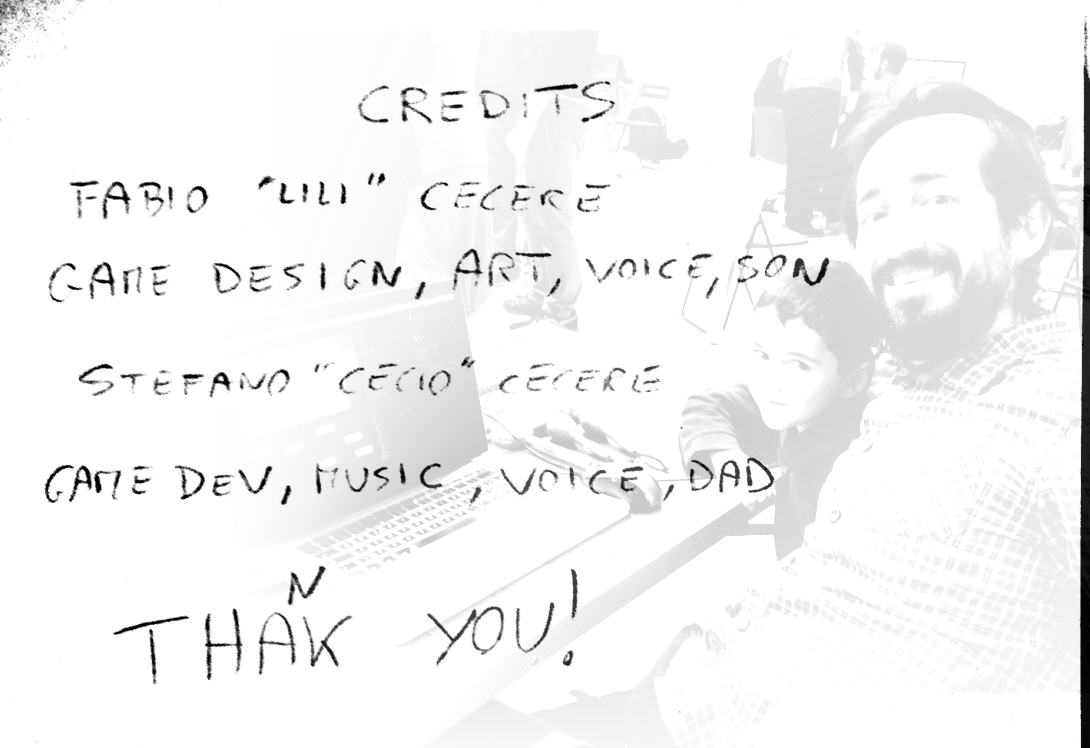 CREDITS
FABIO "LILI" CECERE
GAME DESIGN, ART, VOICE, SON
STEFANO "CECIO" CECERE
GAME DEV, MUSIC, VOICE, DAD
THANK YOU!